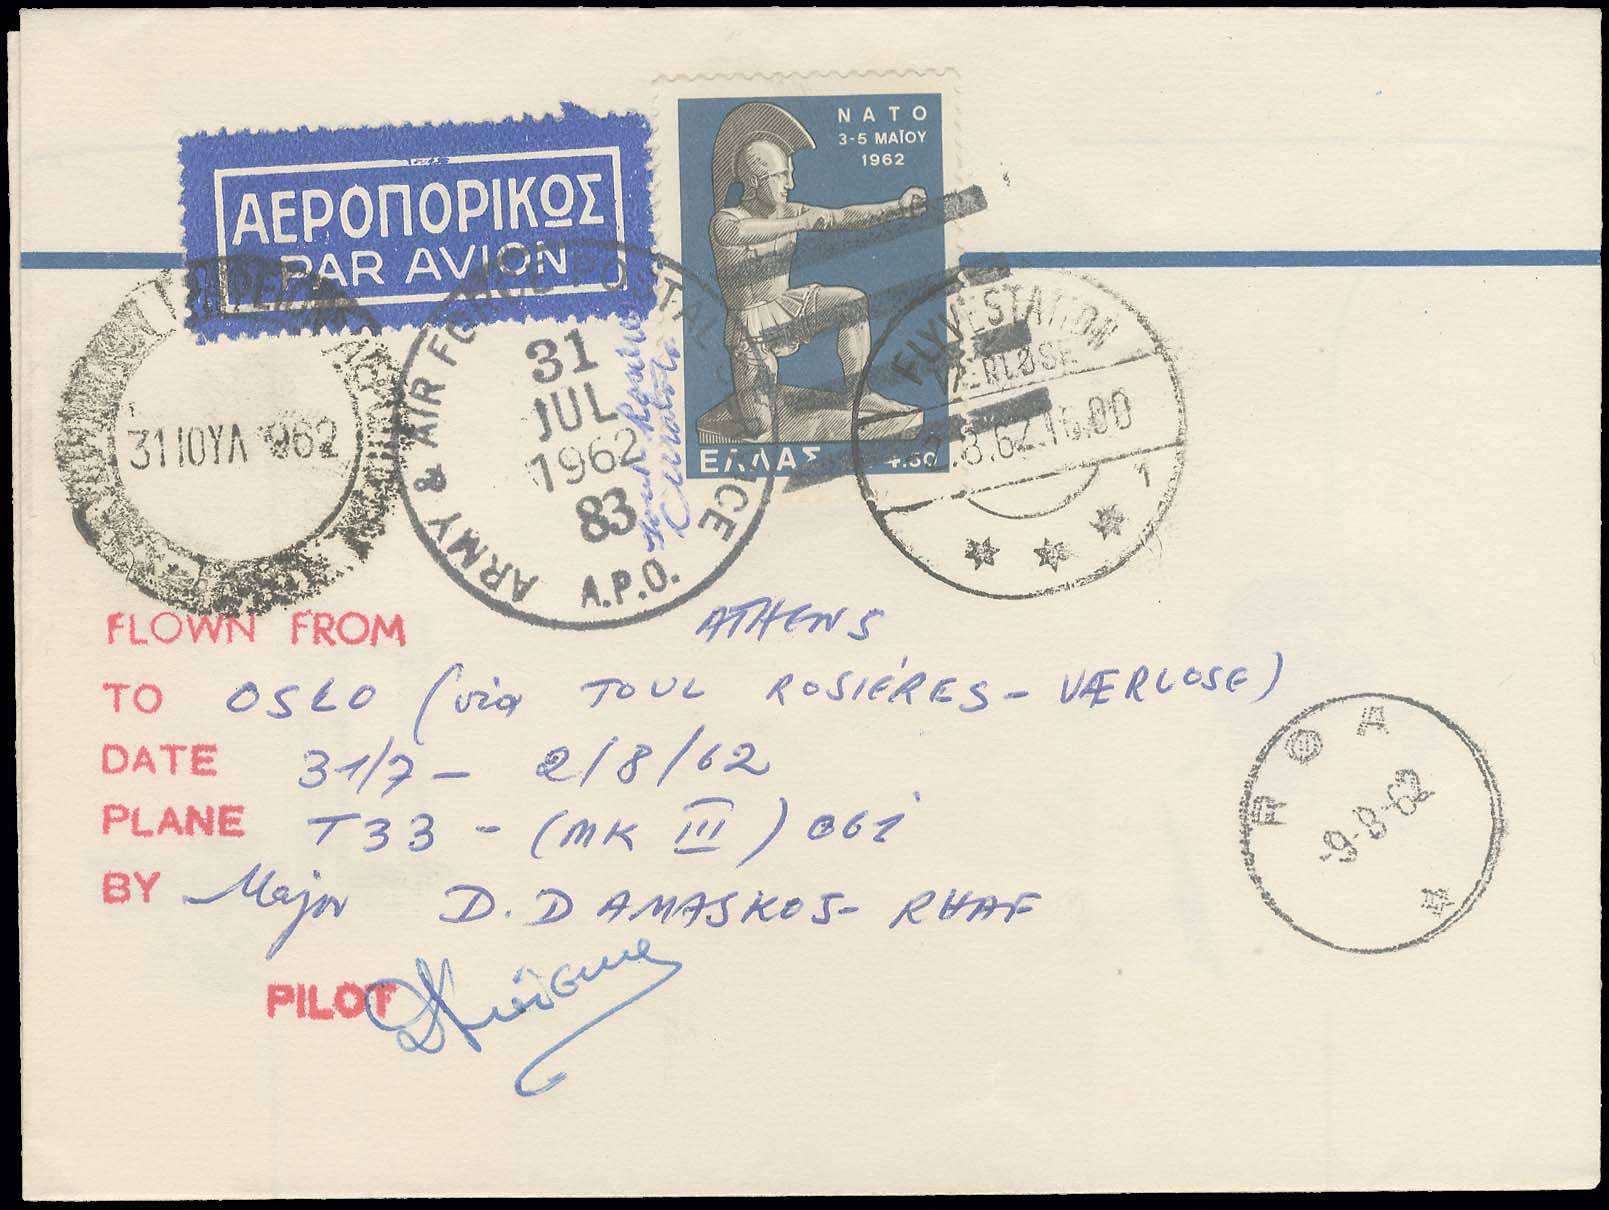 ΝΑΤΟ
3-5 ΜΑΪΟΥ
1962
ΑΕΡΟΠΟΡΙΚΩΣ
PAR AVION
ΕΛΛΑΣ 4.50
31 ΙΟΥΛ 1962
ARMY & AIR FORCE POSTAL SERVICE
31
JUL
1962
83
A.P.O.
FLYVESTATION
VÆRLØSE
2.8.62.16.00
1
FLOWN FROM ATHENS
TO OSLO (via TOUL ROSIÉRES - VÆRLOSE)
DATE 31/7 - 2/8/62
PLANE T33 - (MK III) 061
BY Major D. DAMASKOS - RHAF
PILOT
-9-8-62